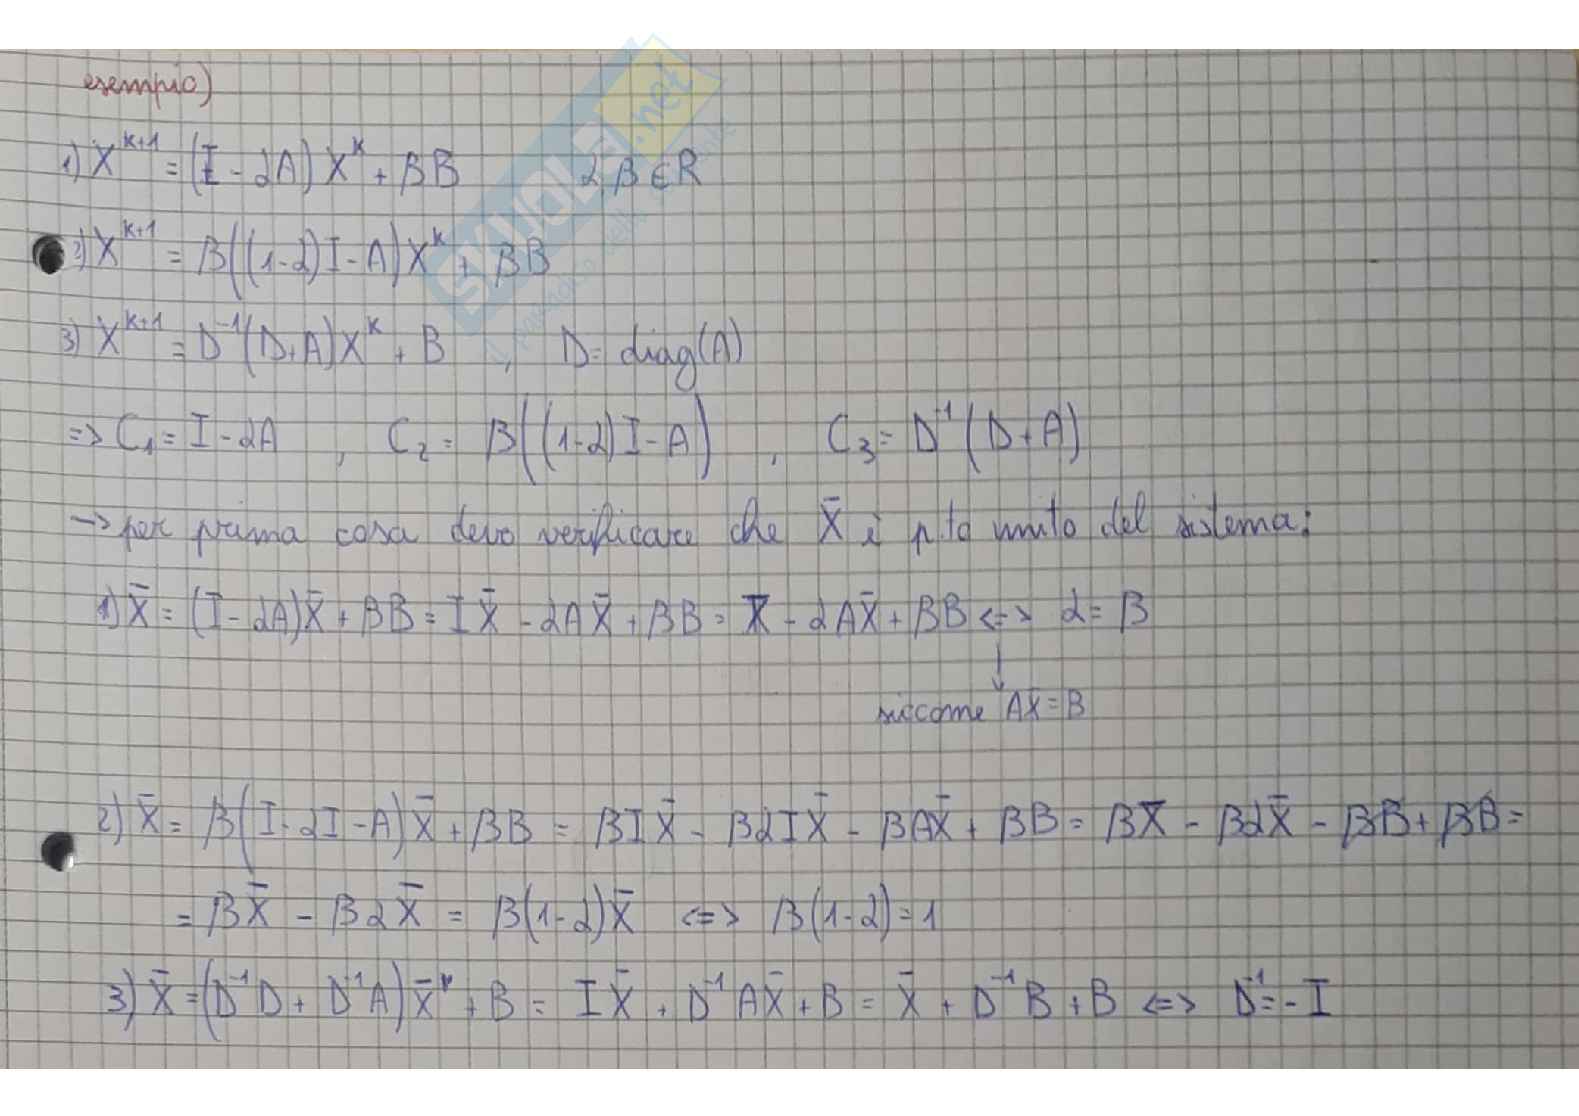 esempio)
1) X^{k+1} = (I - αA) X^k + βB α, β ∈ R
2) X^{k+1} = β((1-α)I - A) X^k + βB
3) X^{k+1} = D^{-1}(D+A)X^k + B , D = diag(A)
=> C₁ = I - αA , C₂ = β((1-α)I - A) , C₃ = D^{-1}(D+A)
-> per prima cosa devo verificare che X̄ è p.to unito del sistema:
1) X̄ = (I - αA)X̄ + βB = IX̄ - αAX̄ + βB = X̄ - αAX̄ + βB <=> α = β
siccome AX̄ = B
2) X̄ = β(I - αI - A)X̄ + βB = βIX̄ - βαIX̄ - βAX̄ + βB = βX̄ - βαX̄ - βB + βB =
= βX̄ - βαX̄ = β(1-α)X̄ <=> β(1-α) = 1
3) X̄ = (D^{-1}D + D^{-1}A)X̄ + B = IX̄ + D^{-1}AX̄ + B = X̄ + D^{-1}B + B <=> D^{-1} = -I
SKUOLA.net